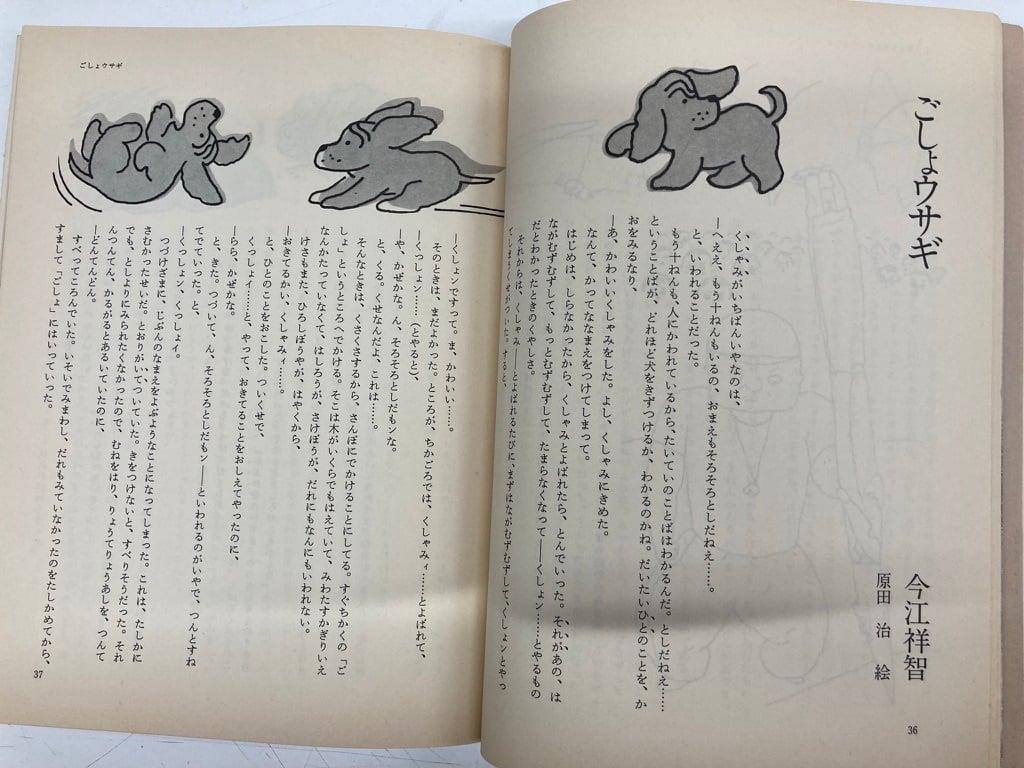 ごしょウサギ
今江祥智
原田　治　絵
くしゃみがいちばんいやなのは、
―へええ、もう十ねんもいるの、おまえもそろそろとしだねえ……。
と、いわれることだった。
もう十ねんも、人にかわれているから、たいていのことばはわかるんだ。としだねえ……
ということばが、どれほど犬をきずつけるか、わかるのかね。だいたいひとのことを、か
おをみるなり、
―あ、かわいいくしゃみをした。よし、くしゃみにきめた。
なんて、かってななまえをつけてしまって。
はじめは、しらなかったから、くしゃみとよばれたら、とんでいった。それがあの、は
ながむずむずして、もっとむずむずして、たまらなくなって―くしょン……とやるもの
だとわかったときのくやしさ。
それからは、くしゃみ―とよばれるたびに、まずはながむずむずして、くしょンとやっ
てしまうくせがついた。すると、
36
ごしょウサギ
―くしょンですって。ま、かわいい……。
そのときは、まだよかった。ところが、ちかごろでは、くしゃみィ……とよばれて、
―くっしょン……（とやると）、
―や、かぜかな。ん、そろそろとしだもンな。
と、くる。くせなんだよ、これは……。
そんなときは、くさくさするから、さんぽにでかけることにしてる。すぐちかくの「ご
しょ」というところへでかける。そこは木がいくらでもはえていて、みわたすかぎりいえ
なんかたっていなくて、はしろうが、さけぼうが、だれにもなんにもいわれない。
けさもまた、ひろしぼうやが、はやくから、
―おきてるかい、くしゃみィ……。
と、ひとのことをおこした。ついくせで、
くっしょイ……と、やって、おきてることをおしえてやったのに、
―らら、かぜかな。
と、きた。つづいて、ん、そろそろとしだもン―といわれるのがいやで、つんとすね
てでていった。と、
―くっしょン、くっしょィ。
つづけざまに、じぶんのなまえをよぶようなことになってしまった。これは、たしかに
さむかったせいだ。とおりがいてついていた。きをつけないと、すべりそうだった。それ
でも、としよりにみられたくなかったので、むねをはり、りょうてりょうあしを、つんて
んつんてん、かるがるとあるいていたのに、
―どんてんどん。
すべってころんでいた。いそいでみまわし、だれもみていなかったのをたしかめてから、
すまして「ごしょ」にはいっていった。
37